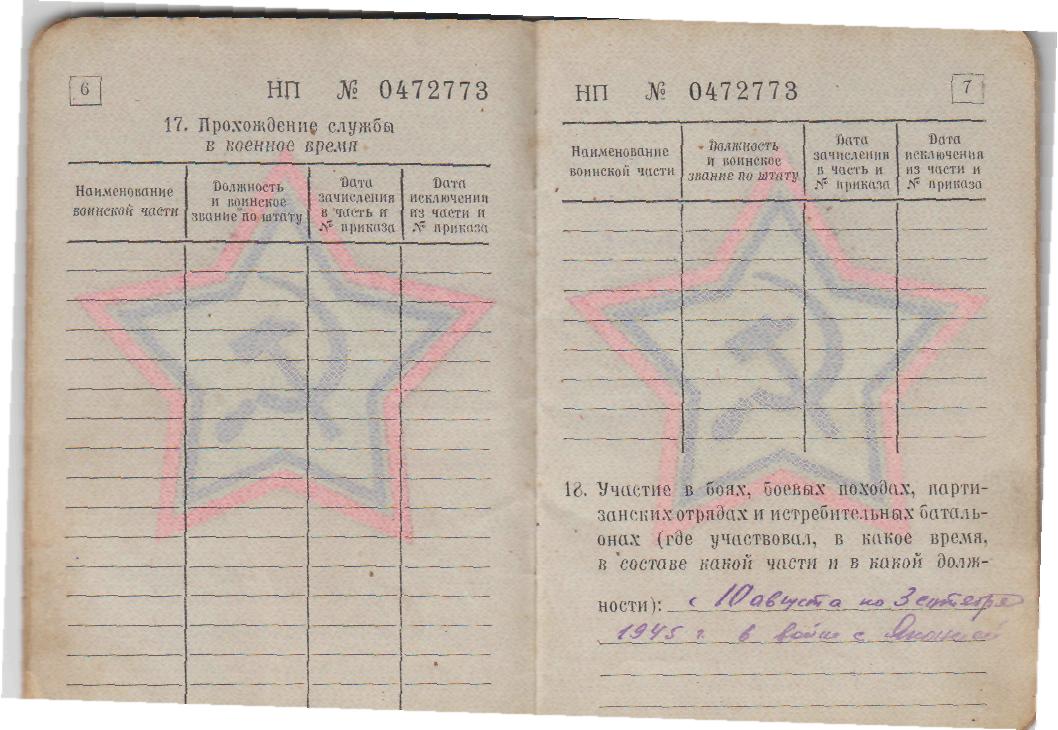 6
НП № 0472773
17. Прохождение службы
в военное время
Наименование
воинской части
Должность
и воинское
звание по штату
Дата
зачисления
в часть и
№ приказа
Дата
исключения
из части и
№ приказа
НП № 0472773
7
Наименование
воинской части
Должность
и воинское
звание по штату
Дата
зачисления
в часть и
№ приказа
Дата
исключения
из части и
№ приказа
18. Участие в боях, боевых походах, парти-
занских отрядах и истребительных баталь-
онах (где участвовал, в какое время,
в составе какой части и в какой долж-
ности): с 10 августа по 3 сентября
1945 г. в войне с Японией